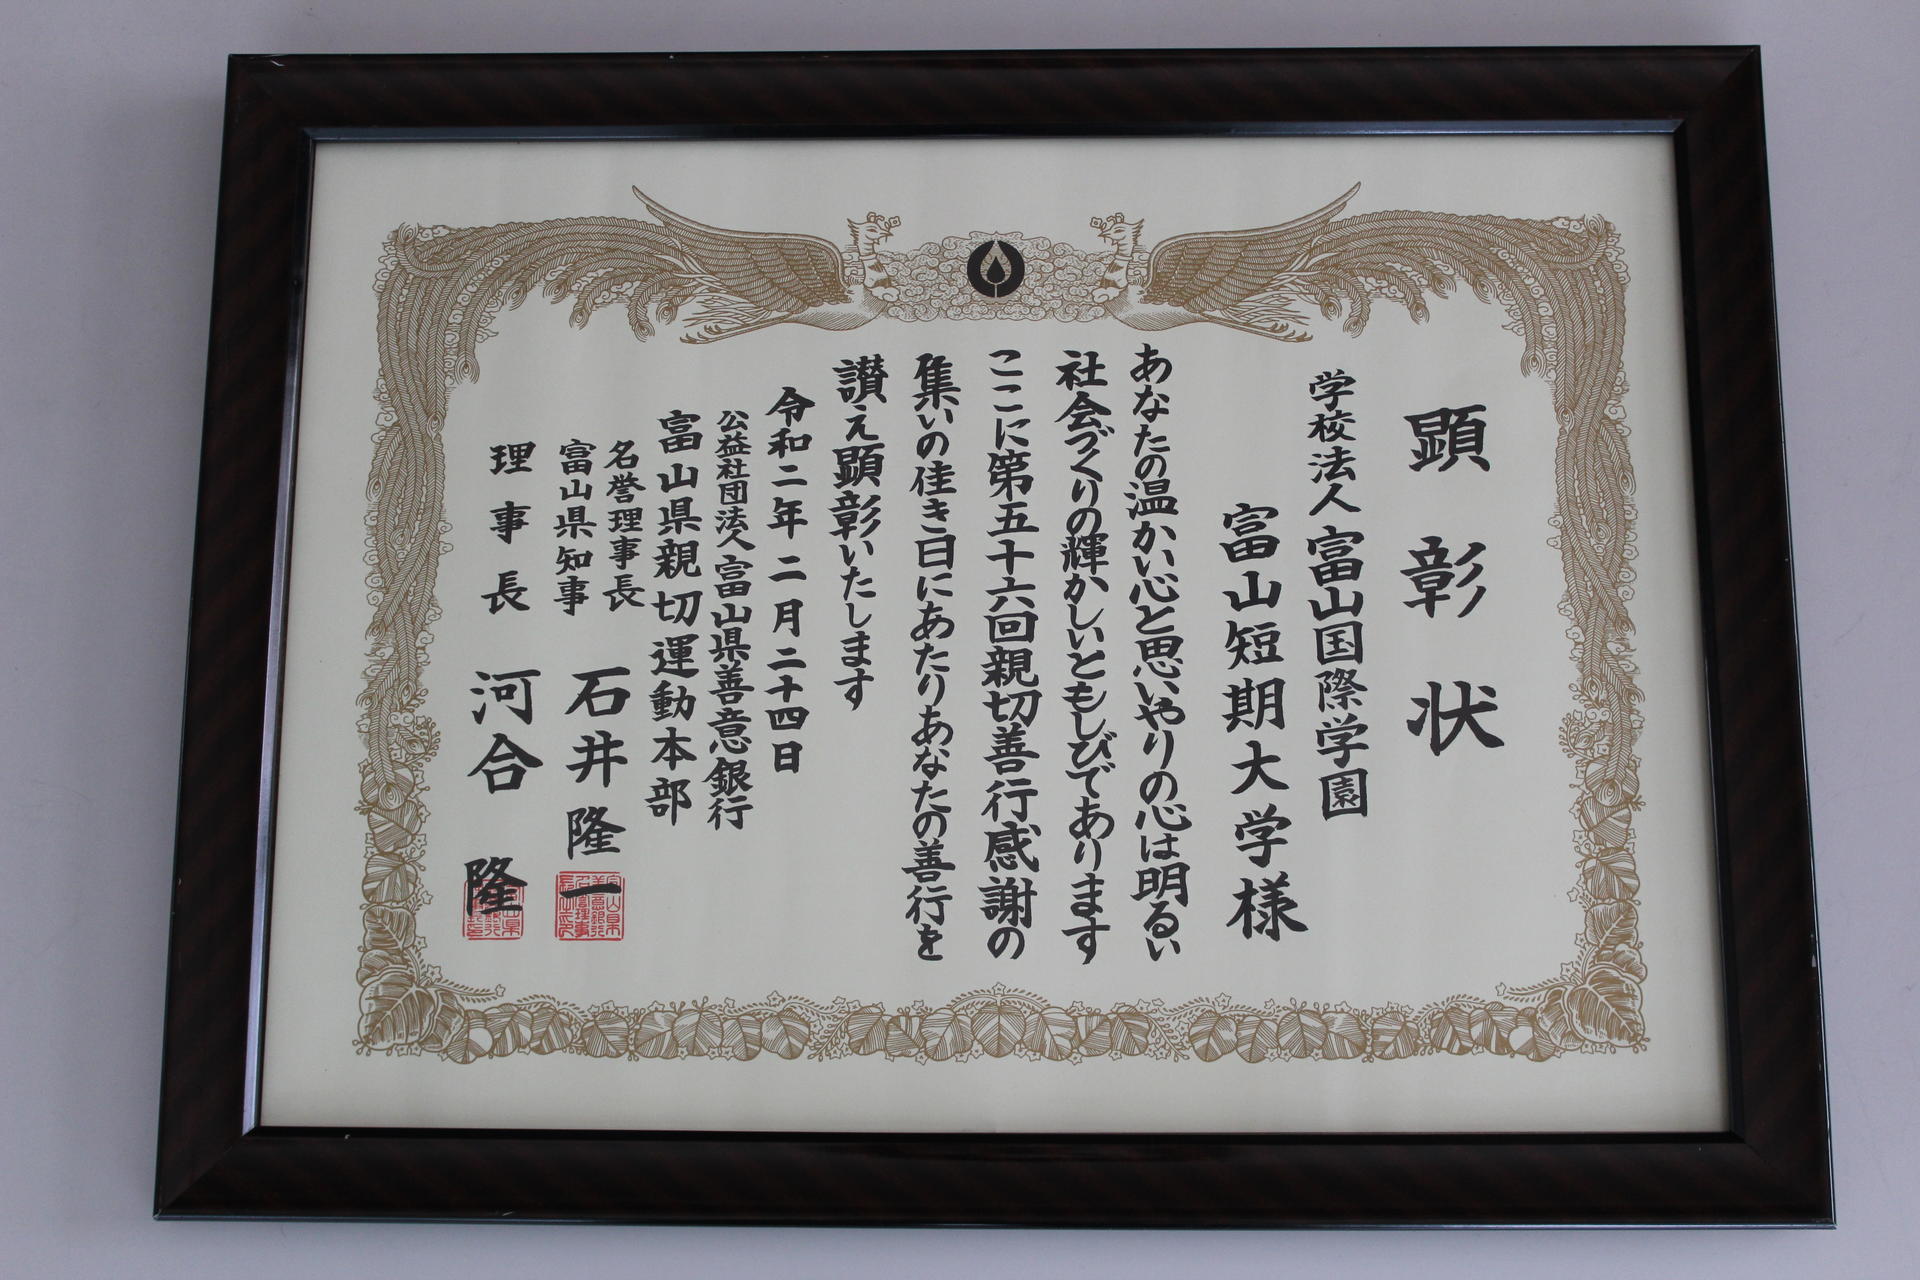 顕彰状
学校法人 富山国際学園
富山短期大学様
あなたの温かい心と思いやりの心は明るい
社会づくりの輝かしいともしびであります
ここに第五十六回親切善行感謝の
集いの佳き日にあたりあなたの善行を
讃え顕彰いたします
令和二年二月二十四日
公益社団法人富山県善意銀行
富山県親切運動本部
名誉理事長
富山県知事 石井隆一
理事長 河合隆